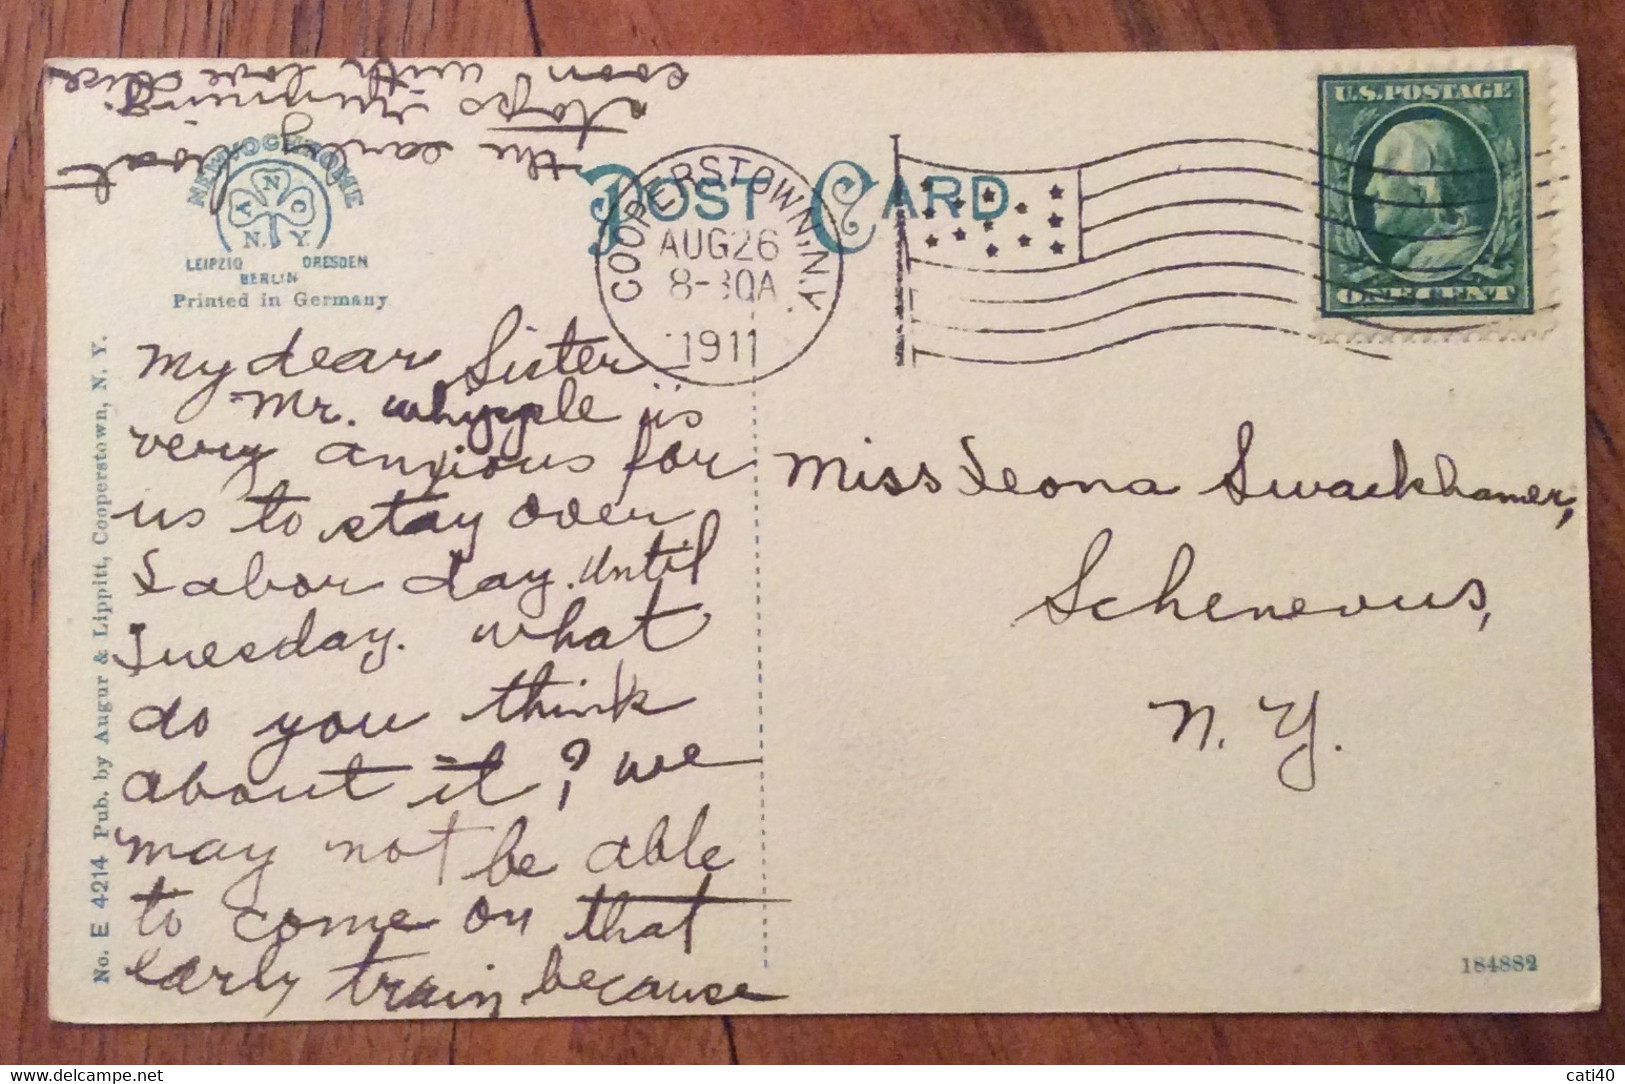 My dear Sister
Mr. Whipple is
very anxious for
us to stay over
Labor day. Until
Tuesday. What
do you think
about it? We
may not be able
to come on that
early train because
the early boat
stops running.
soon with love
Miss Leona Swackhamer,
Schenevus,
N. Y.
POST CARD
COOPERSTOWN, N.Y.
AUG 26
8-30A
1911
U.S. POSTAGE
ONE CENT
NEWVOCHROME
A N C
N. Y.
LEIPZIG DRESDEN
BERLIN
Printed in Germany
No. E 4214 Pub. by Augur & Lippitt, Cooperstown, N. Y.
184882
cati40
delcampe.net